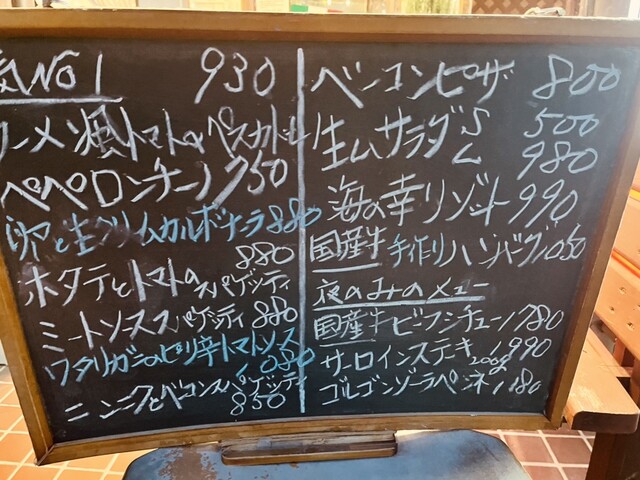 気No1 930
ラーメン風トマトのペスカトーレ
ペペロンチーノ 750
卵と生クリームカルボナーラ 880
ホタテとトマトのスパゲッティ 880
ミートソーススパゲッティ 880
ワタリガニのピリ辛トマトソース 1,080
ニンニクとベーコンスパゲッティ 850
ベーコンピザ 800
生ハムサラダ S 500
L 980
海の幸リゾット 990
国産牛手作りハンバーグ 1,050
夜のみのメニュー
国産牛ビーフシチュー 1,780
サーロインステーキ 200g 1,990
ゴルゴンゾーラペンネ 1,180